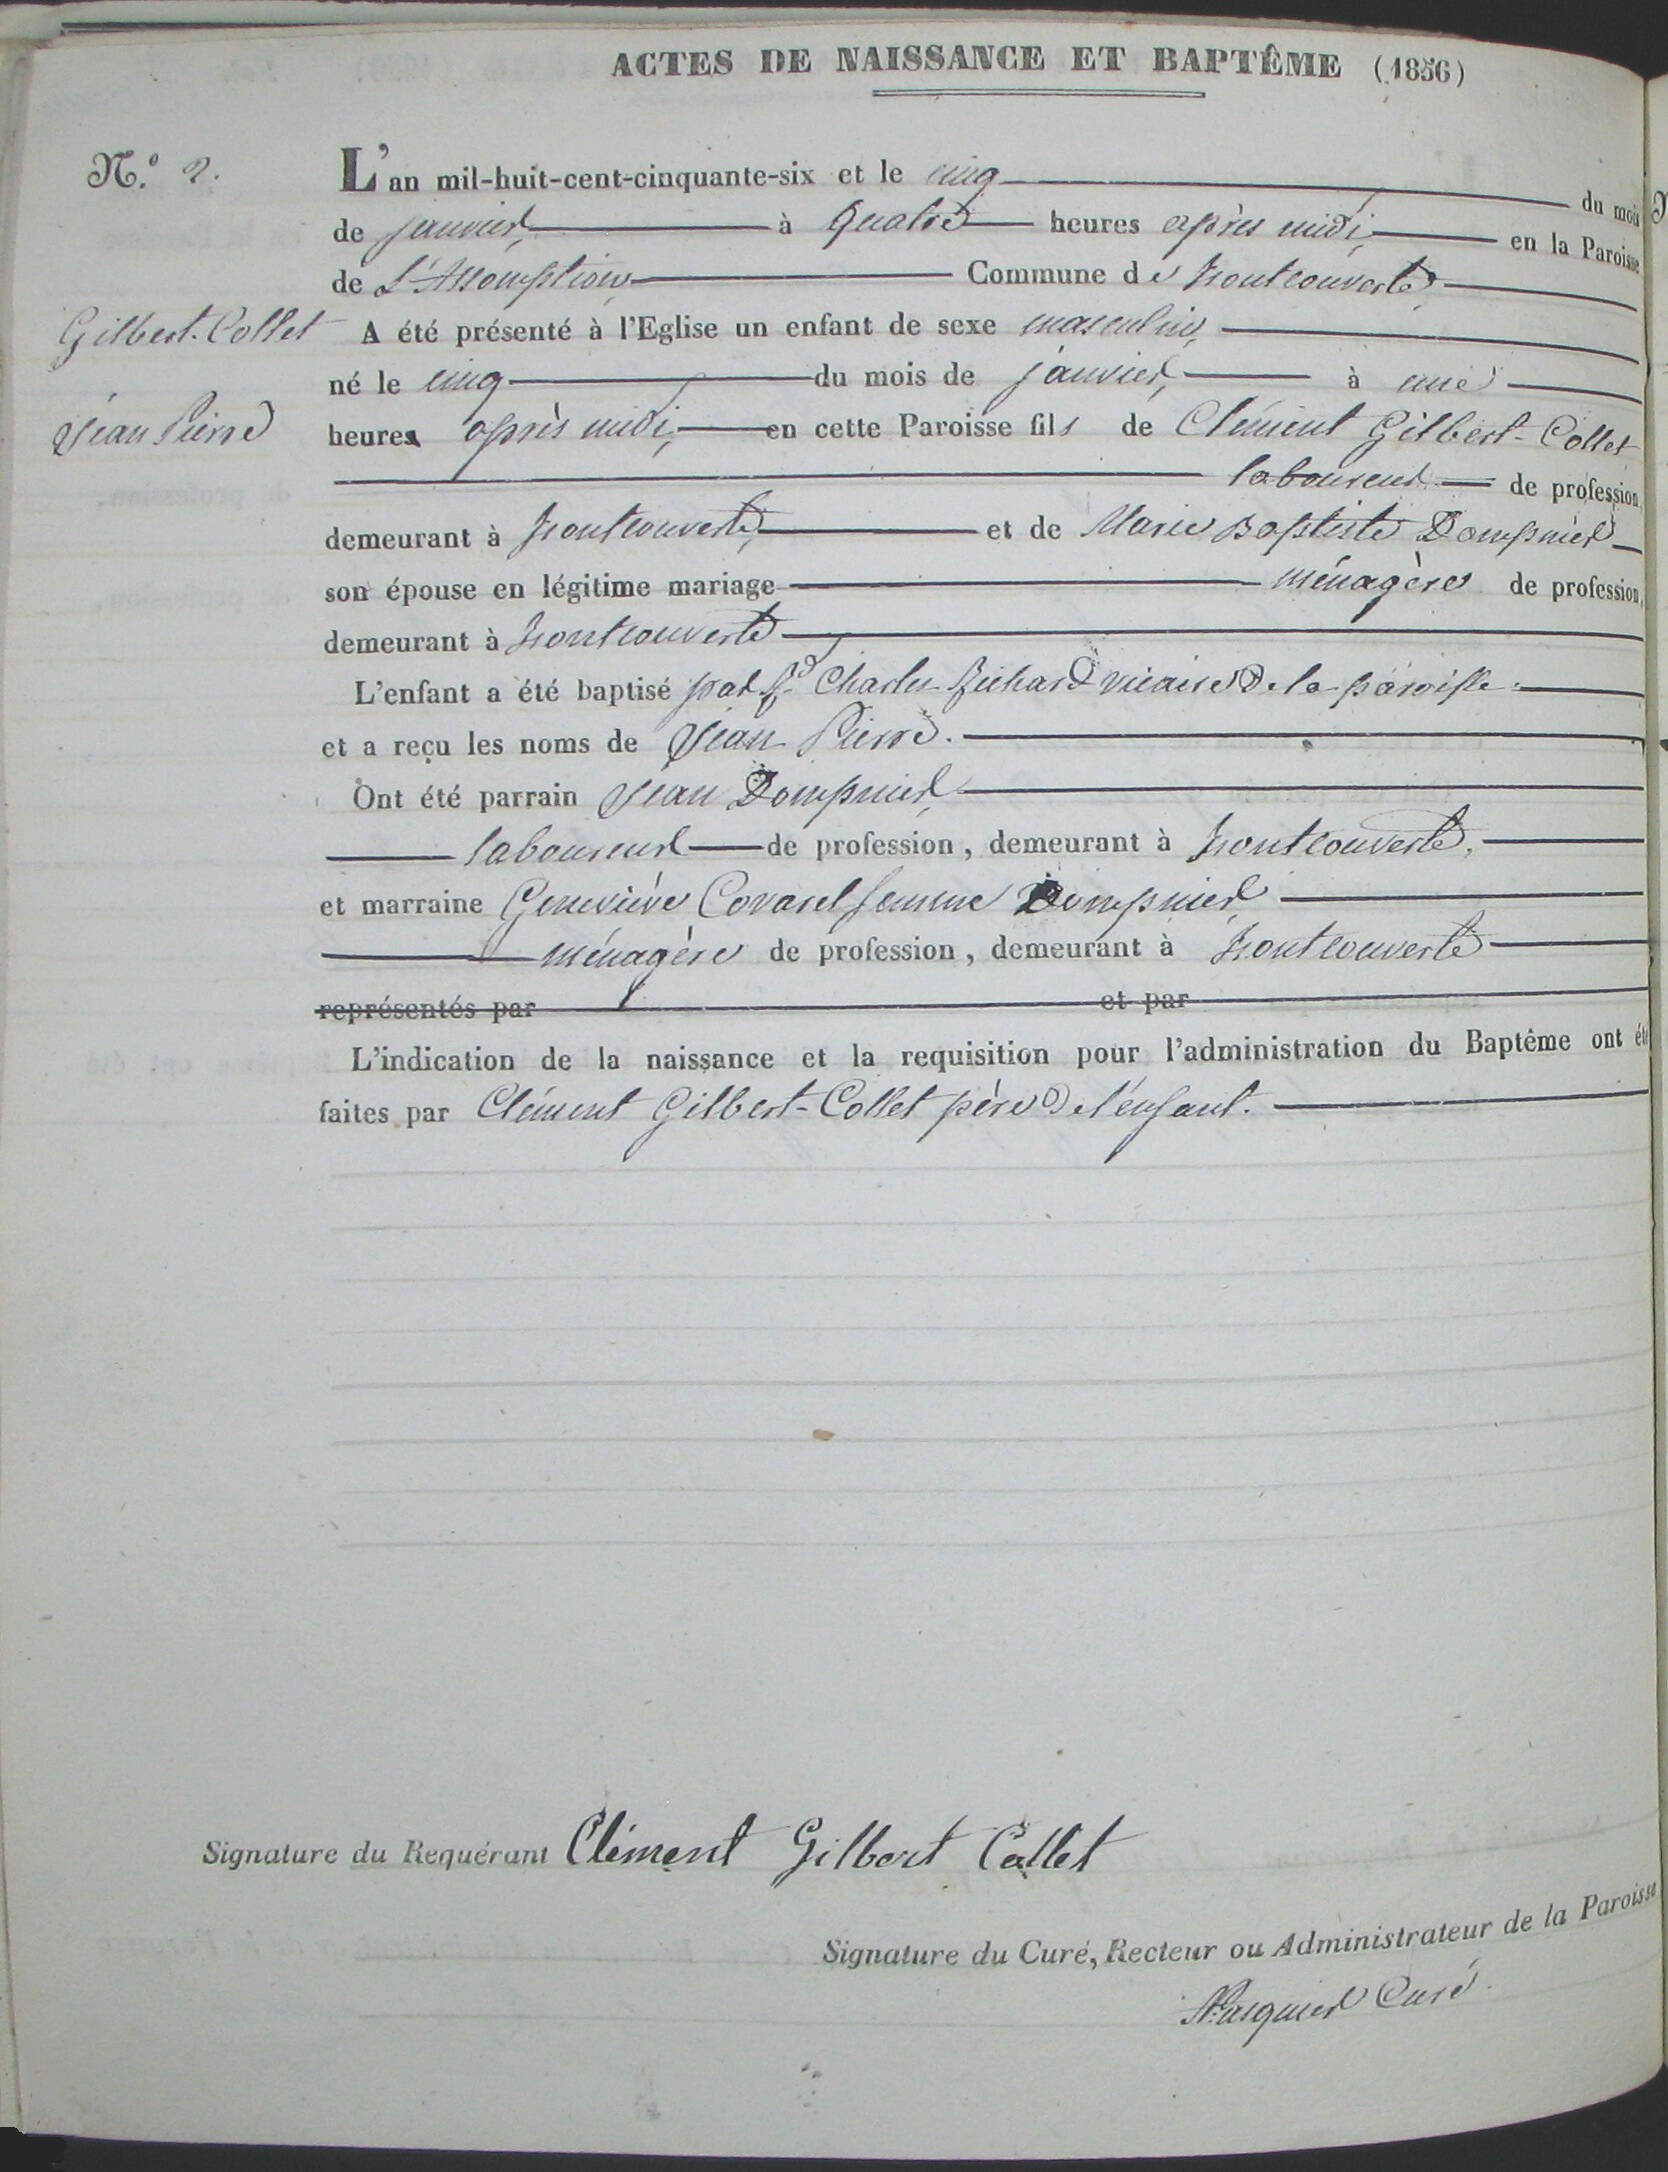 ACTES DE NAISSANCE ET BAPTÊME (1856)
N.º 2.
L'an mil-huit-cent-cinquante-six et le cinq du mois
de janvier, à quatre heures après midi, en la Paroisse
de L'Assomption Commune de Montcouverte
Gilbert-Collet
A été présenté à l'Eglise un enfant de sexe masculin,
né le cinq du mois de janvier, à une
Jean Pierre
heure après midi, en cette Paroisse fils de Clément Gilbert-Collet
laboureur de profession,
demeurant à Montcouverte, et de Marie Baptiste Dompnier
son épouse en légitime mariage ménagère de profession,
demeurant à Montcouverte
L'enfant a été baptisé par Rd Charles Richard vicaire de la paroisse.
et a reçu les noms de Jean Pierre.
Ont été parrain Jean Dompnier,
laboureur de profession, demeurant à Montcouverte,
et marraine Geneviève Covarel femme Dompnier,
ménagère de profession, demeurant à Montcouverte
représentés par et par
L'indication de la naissance et la requisition pour l'administration du Baptême ont été
faites par Clément Gilbert-Collet père de l'enfant.
Signature du Requérant Clément Gilbert Collet
Signature du Curé, Recteur ou Administrateur de la Paroisse
Curé.